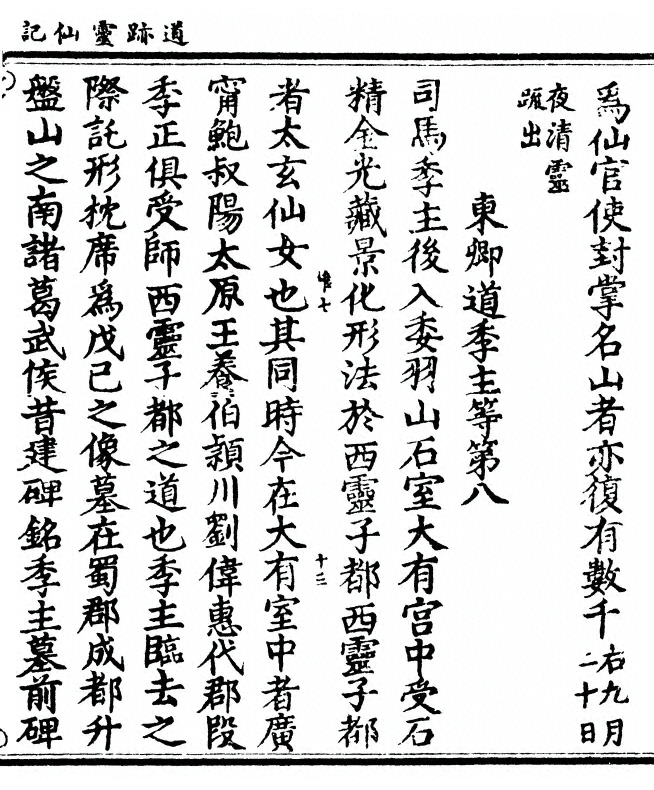 記仙靈跡道
爲仙官使封掌名山者亦復有數千右九月二十日
夜清靈疏出
東卿道季主等第八
司馬季主後入委羽山石室大有宮中受石
精金光藏景化形法於西靈子都西靈子都
者太玄仙女也其同時今在大有室中者廣
甯鮑叔陽太原王養伯潁川劉偉惠代郡段
季正俱受師西靈子都之道也季主臨去之
際託形枕席爲戊己之像墓在蜀郡成都升
盤山之南諸葛武侯昔建碑銘季主墓前碑
十三